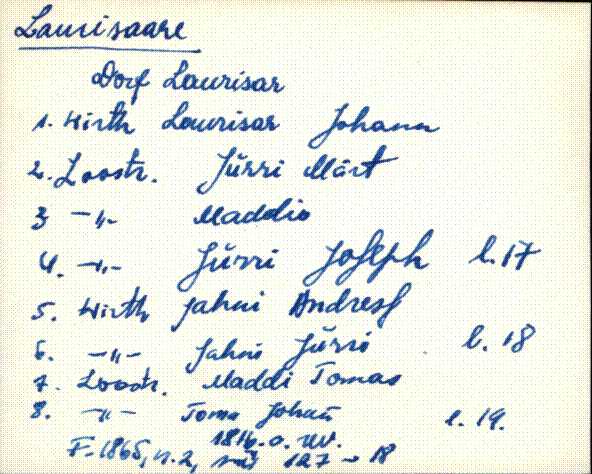 Laurisaare
Dorf Laurisar
1. Wirth Laurisar Johann
2. Loostr. Jürri Märt
3 -"- Maddis
4. -"- Jürri Joseph l. 17
5. Wirth Jahni Andres
6. -"- Jahni Jürri l. 18
7. Loostr. Maddi Tomas
8. -"- Toma Johan l. 19.
1816. a.
F. 1865, n. 2, 127 - 18